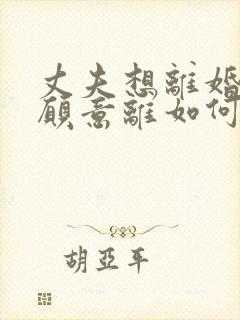 丈夫想離婚
願意離如何
胡亞平